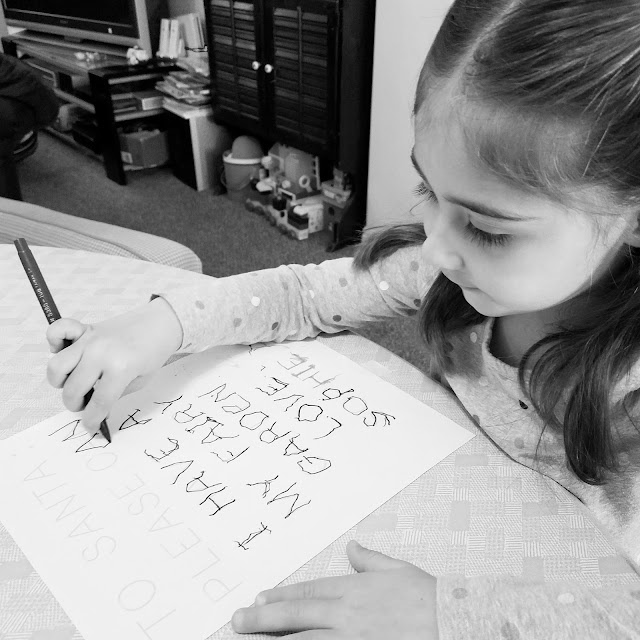 TO SANTA
PLEASE CAN
I HAVE A
MY FAIRY
GARDEN
LOVE,
SOPHIE